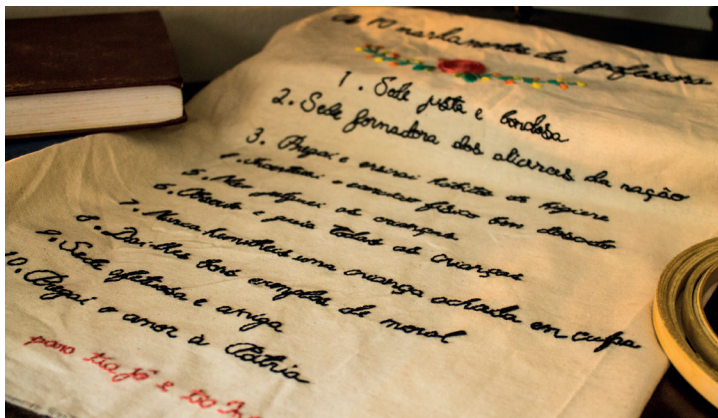 os 10 mandamentos da professora
1. Sede justa e bondosa
2. Sede formadora dos alicerces da nação
3. Pregai e ensinai hábitos de higiene
4. Incentivai o exercício físico bem dosado
5. Não julguei as crianças
6. Observai e guia todas as crianças
7. Nunca humilheis uma criança achada em culpa
8. Dai-lhes bons exemplos de moral
9. Sede afetuosa e amiga
10. Pregai o amor à Pátria
para tia Jô e tio